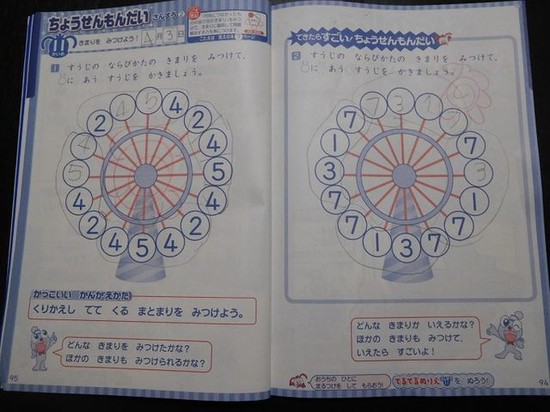 ちょうせんもんだい
さんすう②
11
きまりを みつけよう!
4月3日
1 すうじの ならびかたの きまりを みつけて、
に あう すうじを かきましょう。
4
5
4
2
2
4
4
2
5
4
5
4
2
4
2
4
5
4
2
かっこいい かんがえかた
くりかえし でて くる まとまりを みつけよう。
どんな きまりを みつけたかな?
ほかの きまりも みつけられるかな?
95
できたらすごい!ちょうせんもんだい
2 すうじの ならびかたの きまりを みつけて、
に あう すうじを かきましょう。
7
3
1
7
7
7
1
3
3
7
7
1
1
7
7
7
1
3
どんな きまりが いえるかな?
ほかの きまりも みつけて、
いえたら すごいよ!
おうちの ひとに
まるつけを して もらおう!
てるてるぬりえ 11 を ぬろう!
94